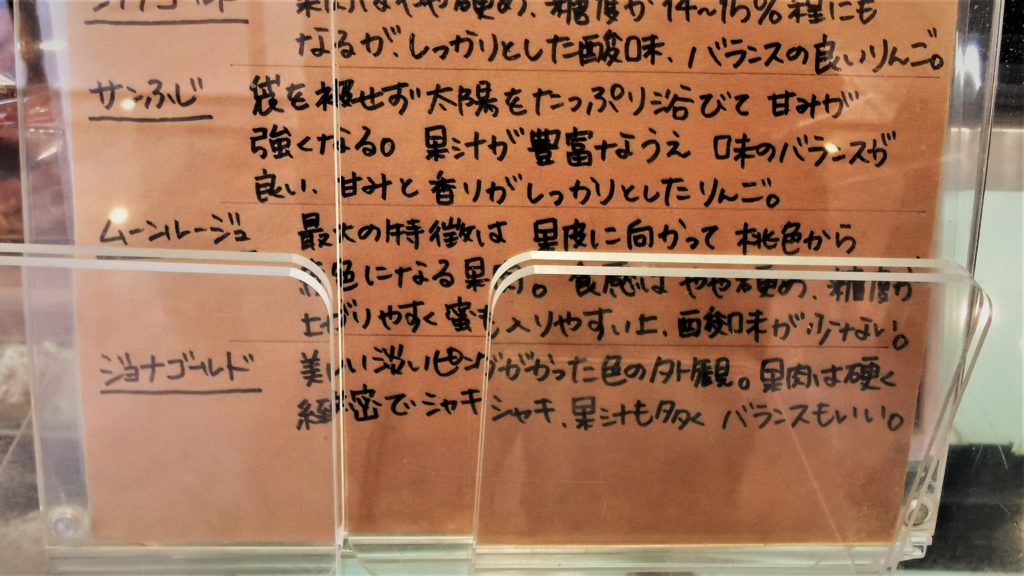 シナノゴールド 果肉はやや硬め、糖度が14〜15%程にも
なるが、しっかりとした酸味、バランスの良いりんご。
サンふじ 袋を被せず太陽をたっぷり浴びて甘みが
強くなる。果汁が豊富なうえ 味のバランスが
良い、甘みと香りがしっかりとしたりんご。
ムーンルージュ 最大の特徴は 果皮に向かって 桃色から
色になる果。食感はやや硬め、糖度が
上がりやすく蜜も入りやすい上、酸味が少ない。
ジョナゴールド 美しい淡いピンクがかった色の外観。果肉は硬く
密でシャキシャキ、果汁も多く バランスもいい。